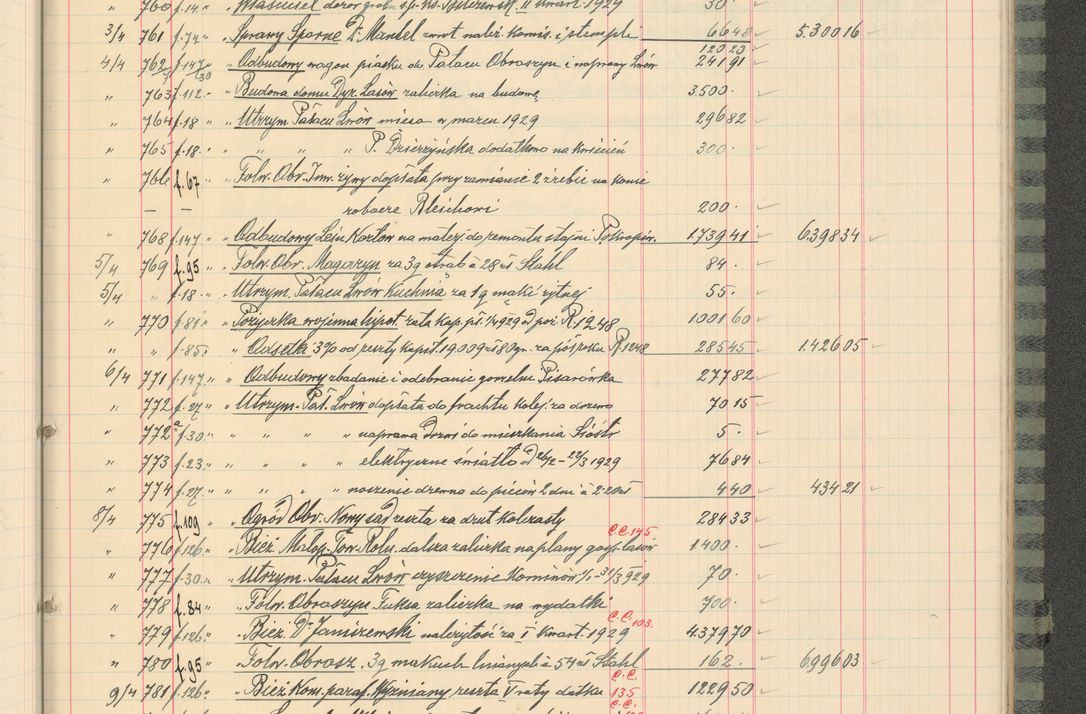 " 760 f.14. " 30.
3/4 761 f.74. " Sprawy Sporne Dr. Mandel zwrot należ. komis. i stemple 6648 5.30016
4/4 762 f.147. 130 " Odbudowy wagon piasku do Pałacu Obroszyn i naprawy Lwów 12020 24191
" 763 f.112. " Budowa domu Dyr. Lasów zaliczka na budowę 3.500.
" 764 f.18 " Utrzym. Pałacu Lwów mięsa w marcu 1929 29682
" 765 f.18. " " " " P. Dzierżyńska dodatkowo na kwiecień 300.
" 766 f.67 " Folw. Obr. Inw. żywy dopłata przy zamianie 2 źrebic na konie
— — robocze Bleichowi 200.
" 768 f.147. " Odbudowy Leiu Kortów na materj. do remontu stajni 173941 639834
5/4 769 f.95 " Folw. Obr. Magazyn za 3q otrąb à 28 zł Stahl 84.
5/4 " f.18. " Utrzym. Pałacu Lwów Kuchnia za 1q mąki żytnej 55.
" 770 f.81. " Pożyczka wojenna hipot. rata kap. pł. 1/4 929 od poż. R. 1248 100160
" " f.85. " Odsetki 3% od reszty kapit. 19.009 zł 80 gr. za półrocze R. 1248 28545 1.42605
6/4 771 f.147. " Odbudowy zbadanie i odebranie gorzelni Pisarówka 27782
" 772 f.27. " Utrzym. Pał. Lwów dopłata do frachtu kolej. za drzewo 7015
" 772a f.30. " " " " naprawa drzwi do mieszkania Sióstr 5.
" 773 f.23. " " " " elektryczne światło od 26/2 - 22/3 1929 7684
" 774 f.27. " " " " noszenie drzewa do pieców 2 dni à 2.20 zł 440 43421
8/4 775 f.109 " Ogród Obr. Nowy sad reszta za drut kolczasty 28433
C.C. 145
" 776 f.126. " Bież. Małop. Tow. Roln. dalsza zaliczka na plany gosp. lasów 1.400.
" 777 f.30. " Utrzym. Pałacu Lwów czyszczenie kominów 1/1 - 31/3 929 70.
" 778 f.84 " Folw. Obroszyn Fuksa zaliczka na wydatki 700.
C.C. 103.
" 779 f.126. " Bież. Dr. Janiszewski należytość za I kwart. 1929 4.37970
" 780 f.95 " Folw. Obrosz. 3q makuch lnianych à 54 zł Stahl 162. 699603
C.C.
9/4 781 f.126. " Bież. Kom. paraf. Wyżniany reszta V raty datku 135 122950
C.C.